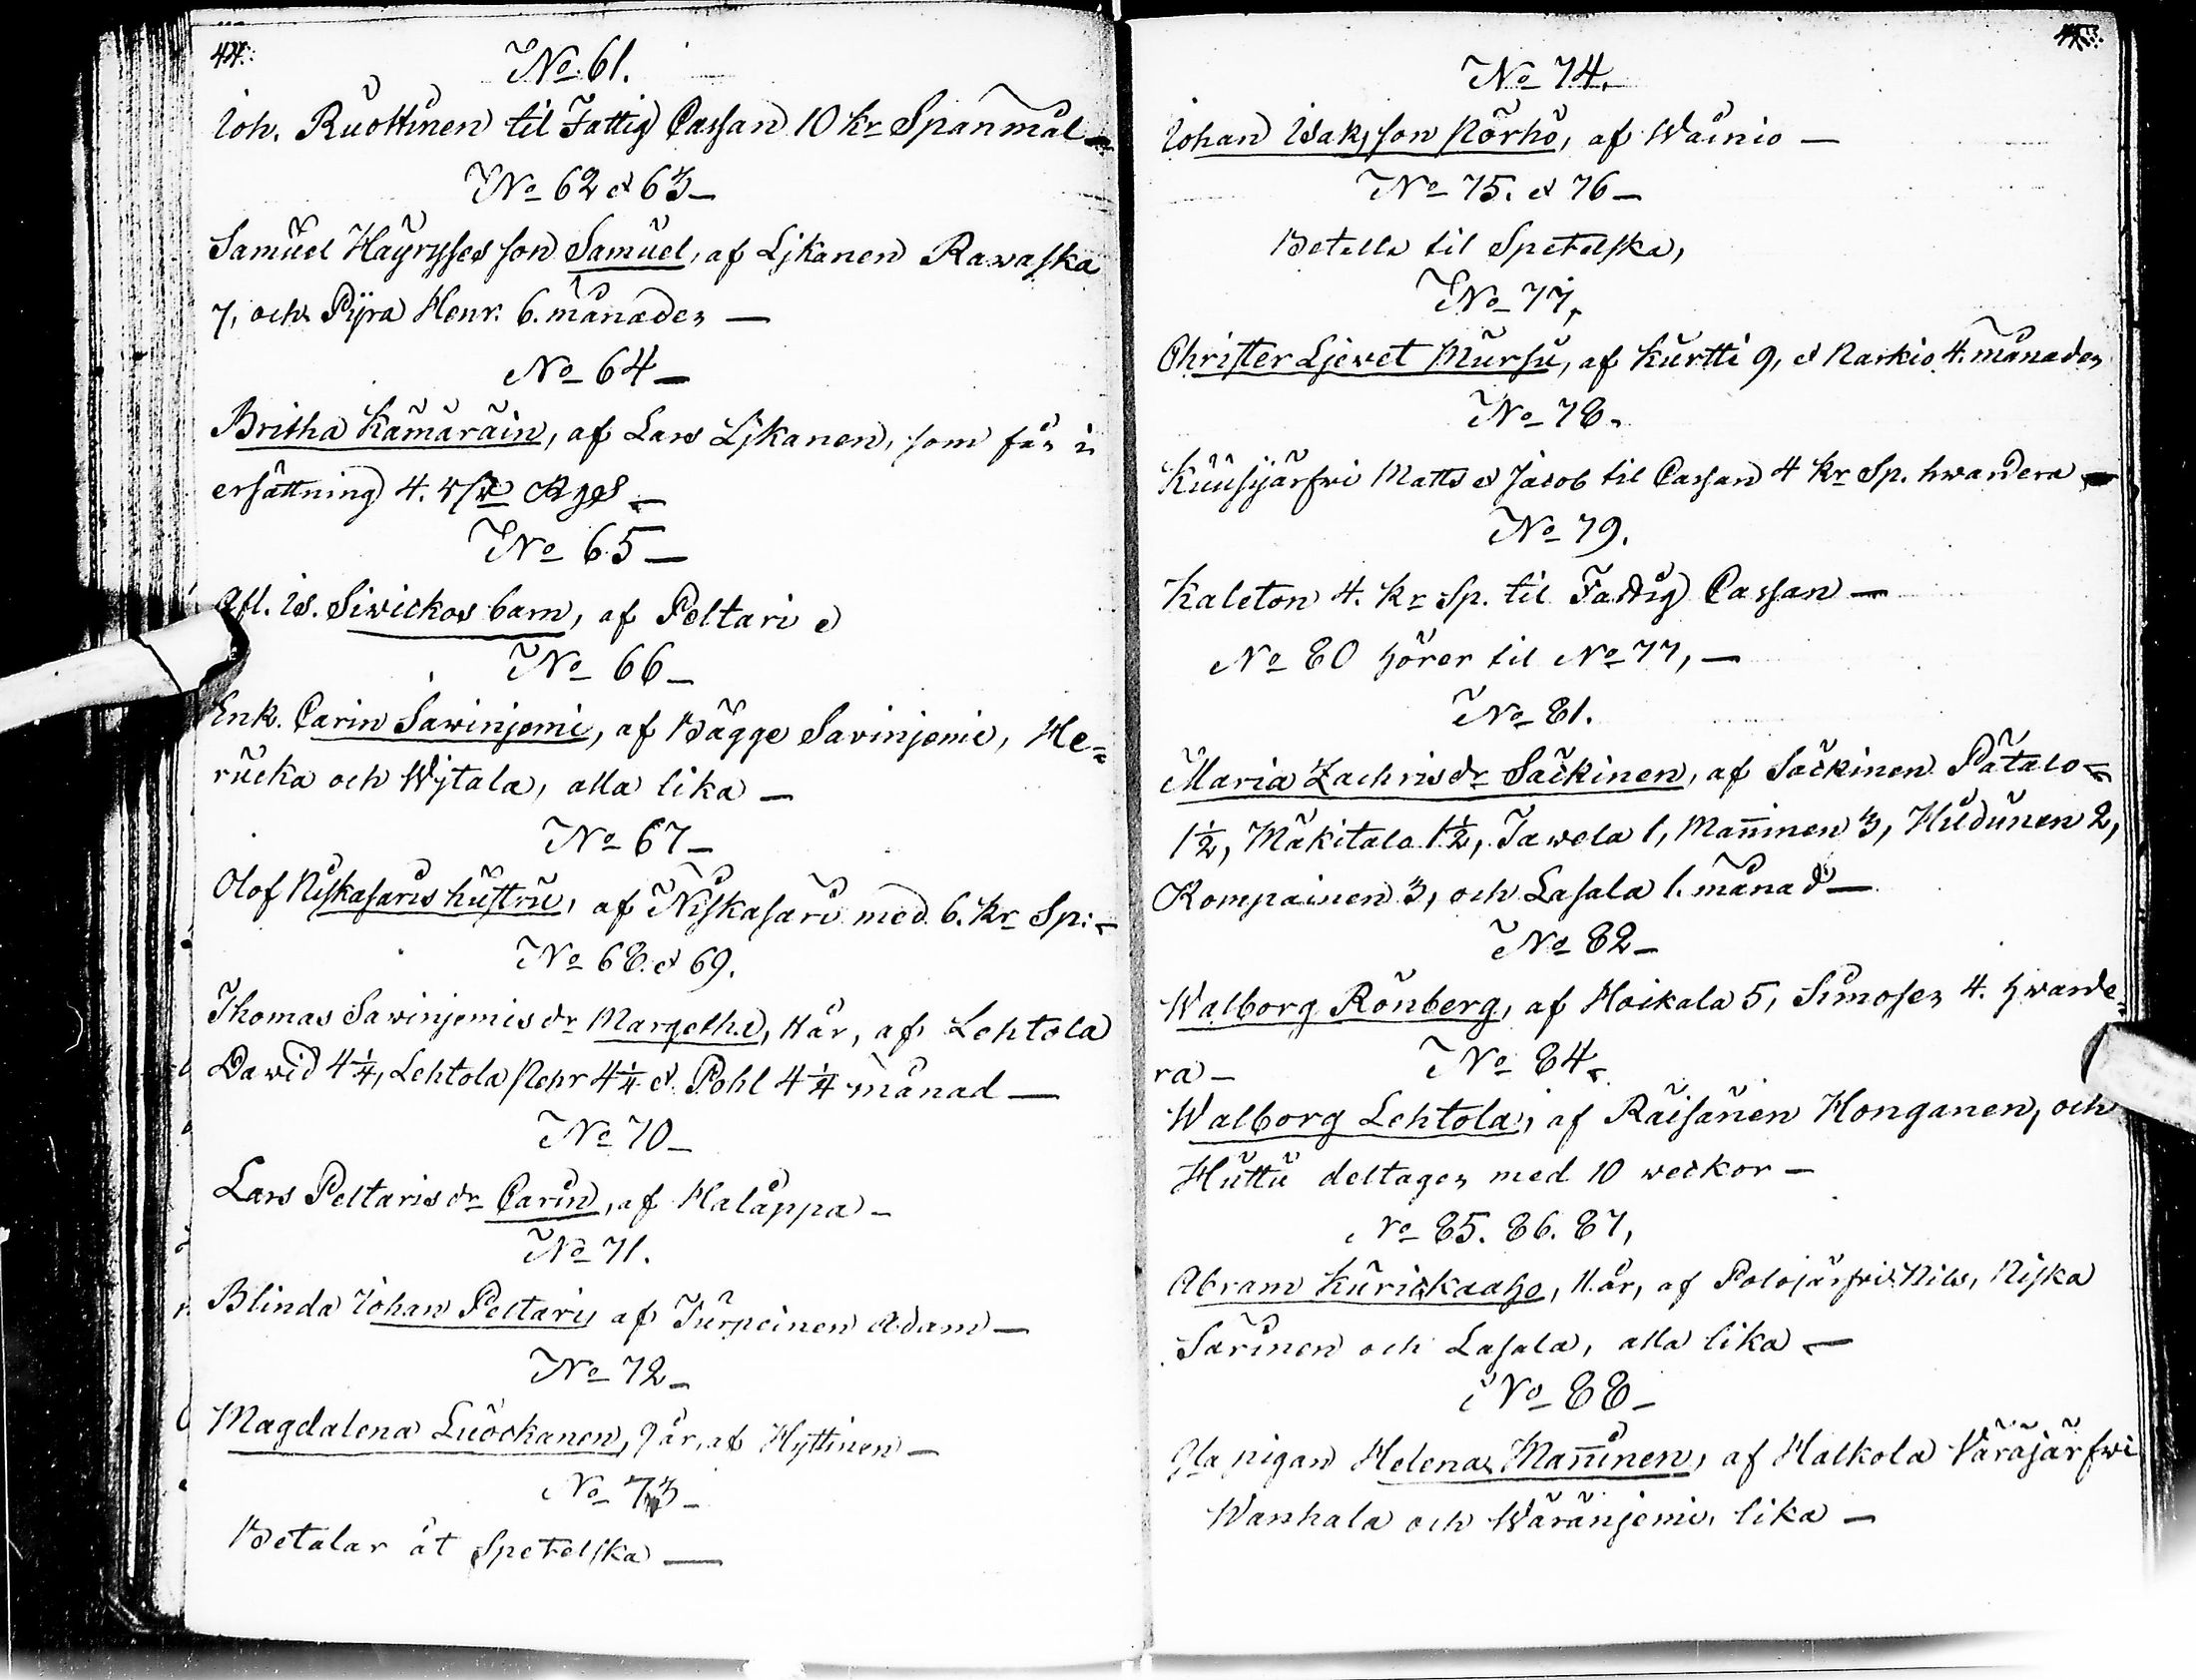 44.
No 61.
Joh. Ruottinen til Fattig Cassan 10 kr Spanmål
No 62 & 63
Samuel Häyrysses son Samuel, af Lykanen Rawaska
7, och Pyrä Henr. 6. månader
No 64
Britha Kämäräin, af Lars Lykanen, som får i
ersättning 4.
No 65
Afl. Is. Siwickos barn, af Peltari
No 66
Enk. Carin Sawinjemi, af Bägge Savinjemi, He=
rucka och Wytala, alla lika
No 67
Olof Niskasaris hustru, af Niskasari med 6. kr Sp:
No 68. & 69.
Thomas Sawinjemis dr Margetha, 11 år, af Lehtola
Dawid 4 1/4, Lehtola Pehr 4 1/4 & Pohl 4 1/4 månad
No 70
Lars Peltaris dr Carin, af Halappa
No 71.
Blinda Johan Peltari, af Turpeinen Adam
No 72
Magdalena Luockanen, 9 år, af Hyttinen
No 73
Betalar åt Spetelska
No 74.
Johan Isaksson Pörhö, af Wäinio
No 75. & 76
Betella til Spetelska,
No 77,
Christer Ljevet Mursu, af Kurtti 9, & Narkio 4. månader
No 78.
Kuusijärfwi Matts & Jacob til Cassan 4 kr Sp. hwardera
No 79.
Kaleton 4. kr Sp. til Fattig Cassan
No 80 hörer til No 77,
No 81.
Maria Zachrisdr Säckinen, af Säckinen Pätalo
1 1/2, Mäkitalo 1 1/2, Jawela 1, Mañinen 3, Hudunen 2,
Kompainen 3, och Lasala 1. månad
No 82
Walborg Rönberg, af Hoikala 5, Simoser 4. hwarde=
ra
No 84
Walborg Lehtola, af Räisänen Honganen, och
Huttu deltager med 10 weckor
No 85. 86. 87,
Abram Kurickaaho, 11. år, af Polojärfwi Nils, Niska
Sarinen och Lasala, alla lika
No 88
Gla pigan Helena Mañinen, af Halkola Väräjärfwi
Wanhala och Wäränjemi, lika